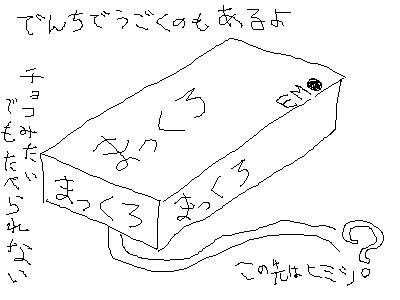 でんちでうごくのもあるよ
チョコみたい
でもたべられない
まっくろ
EM
まっくろ
まっくろ
?
この先はヒミツ。